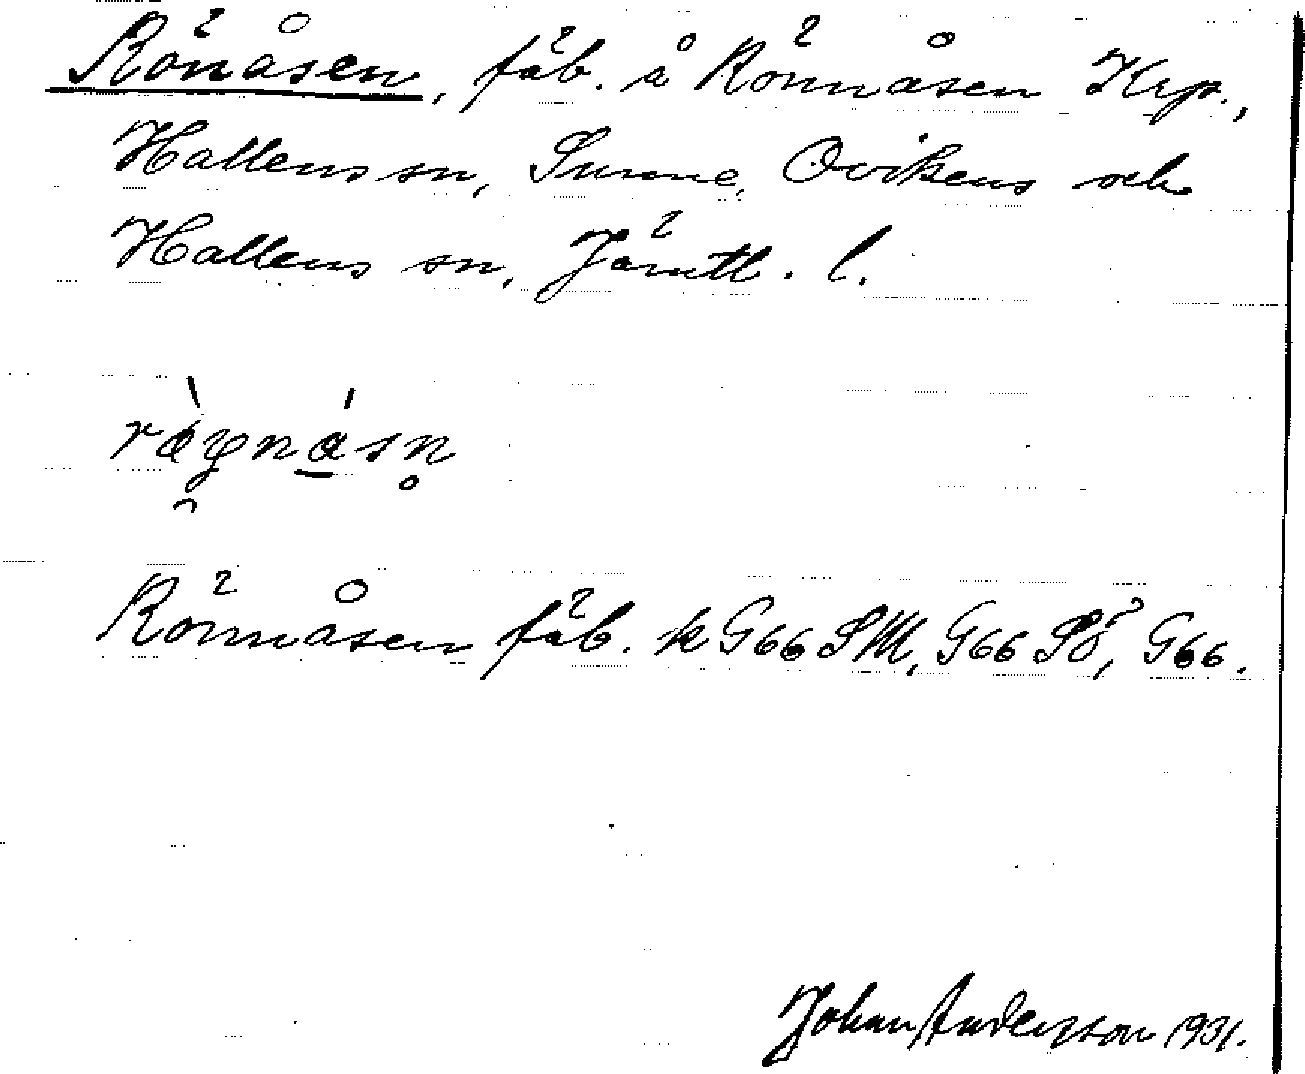 Rönåsen, fäb. å Rönnåsen Krp.,
Hallens sn, Sunne, Ovikens och
Hallens sn, Jämtl. l.
Rönnåsen fäb. k G66 SM, G66 SÖ, G66.
Johan Anderson 1931.